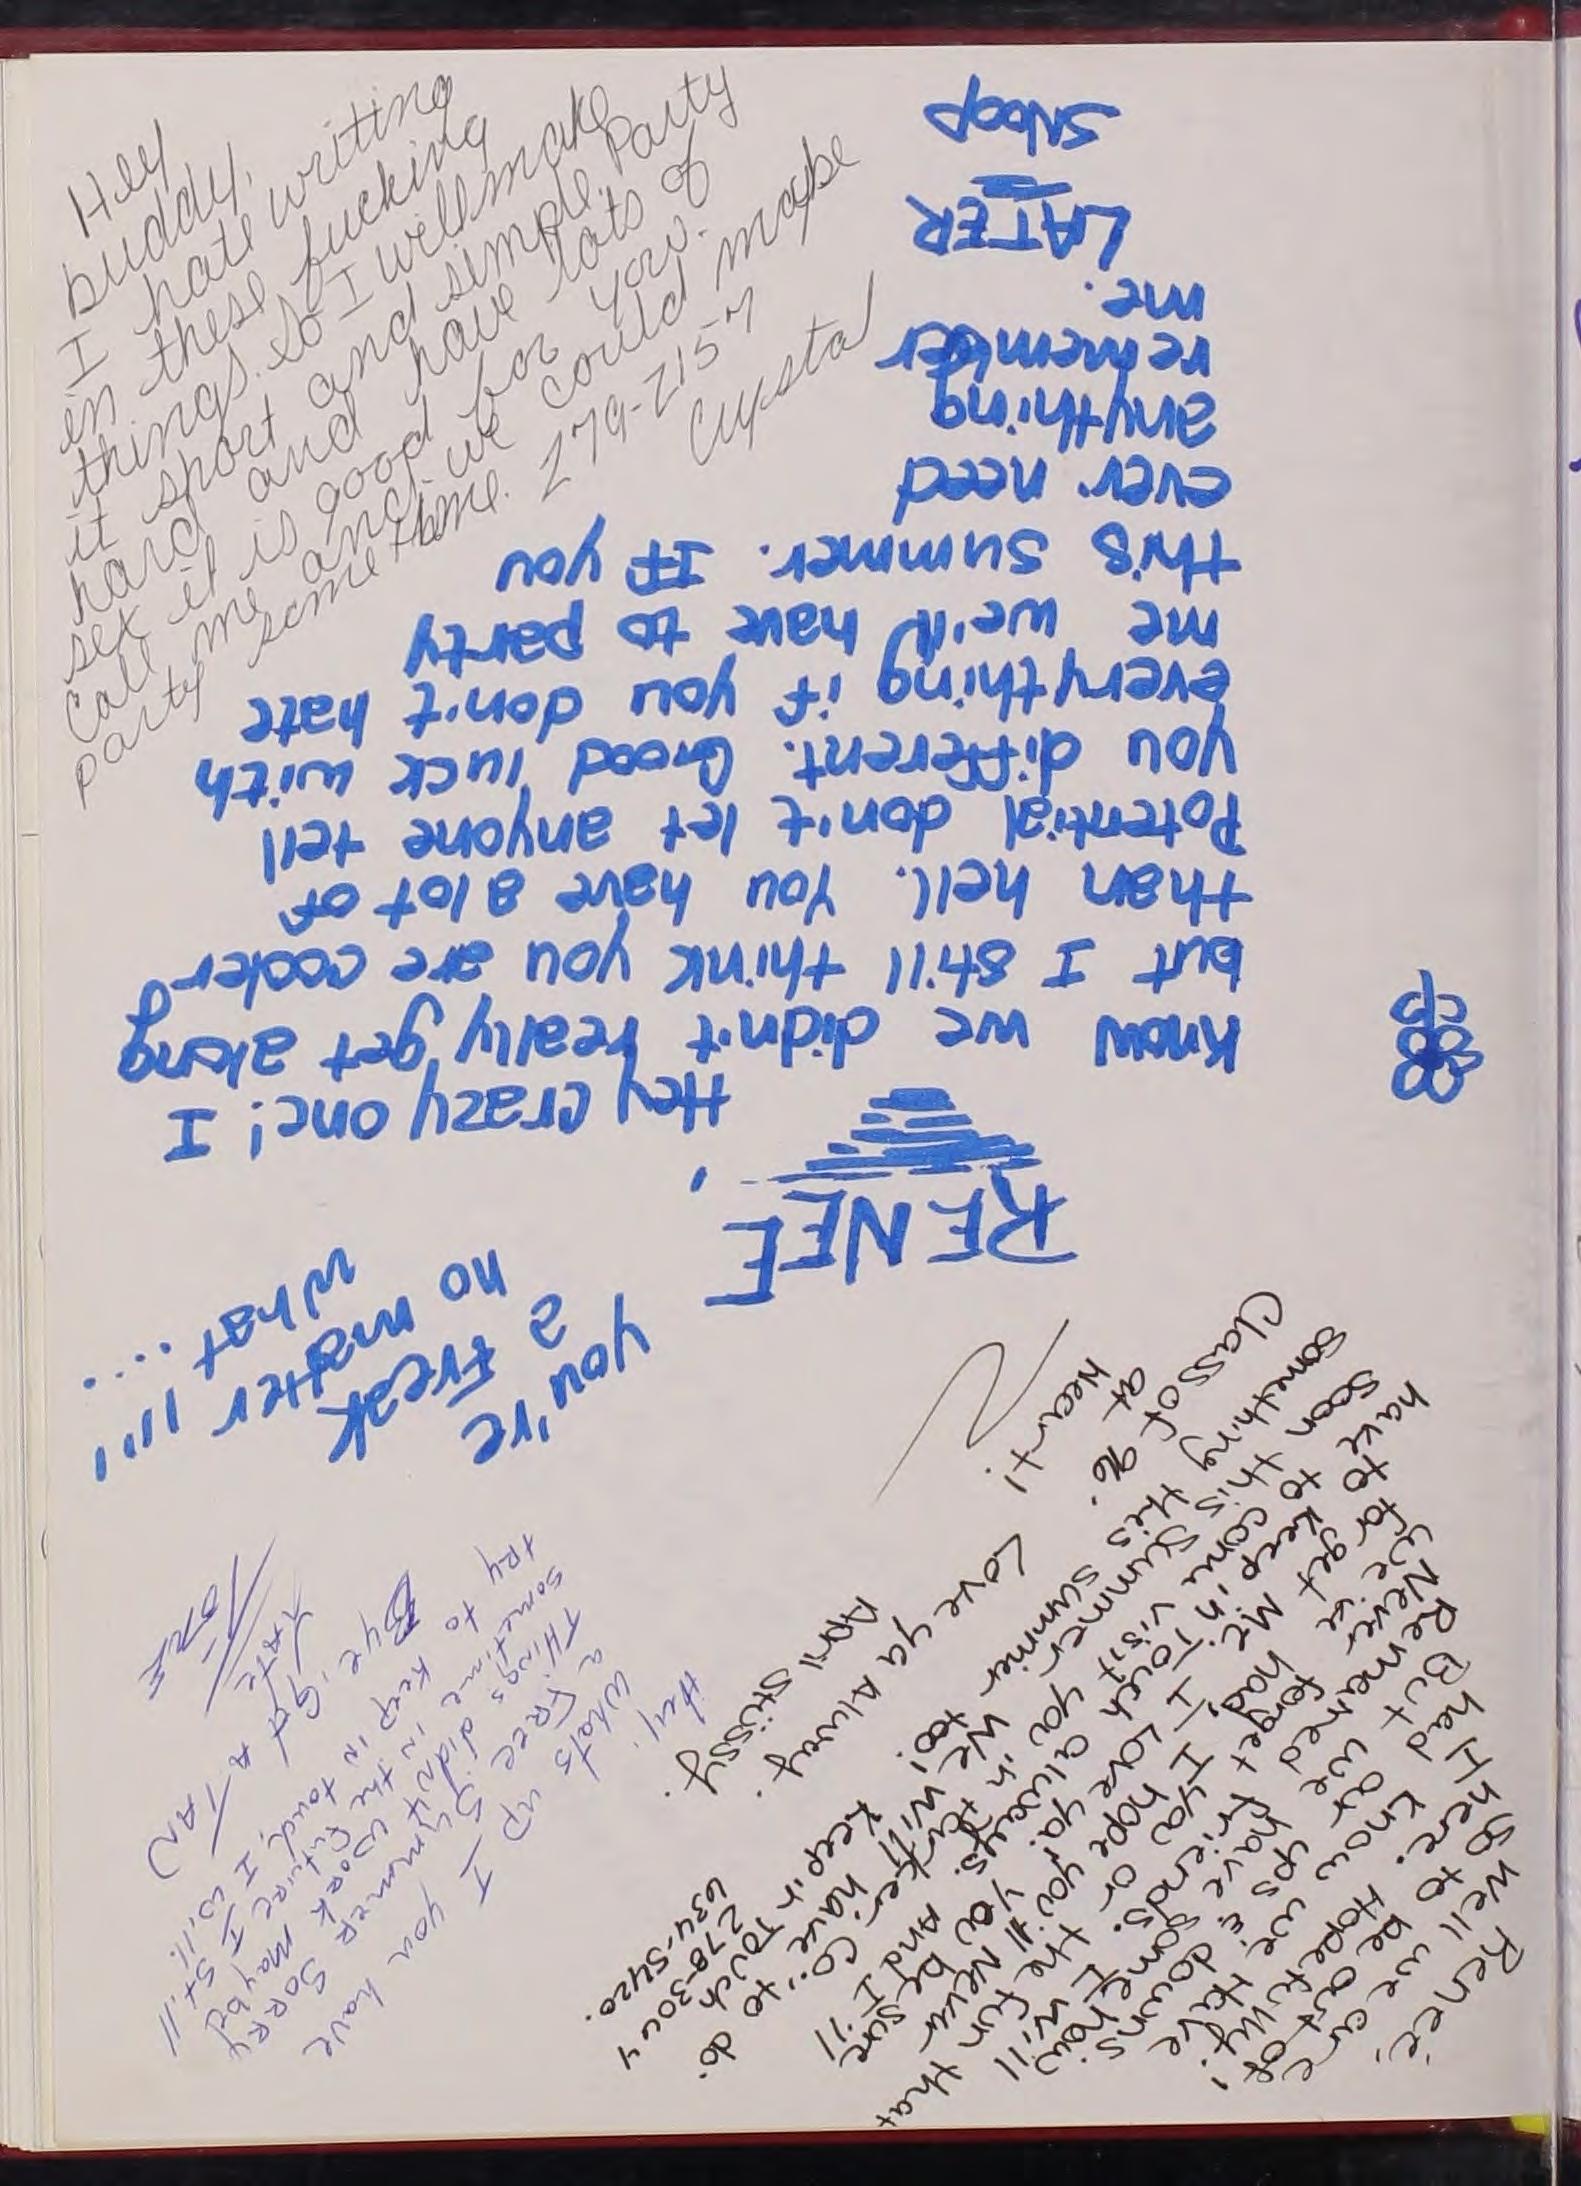 Hey
buddy,
I hate writing
in these fucking
things. So I will make
it short and simple. Party
hard and have lots of
sex it is good for you.
Call me and we could maybe
party sometime. 279-2157
Crystal
RENEE,
Hey crazy one! I
know we didn't really get along
but I still think you are cooler
than hell. You have a lot of
Potential don't let anyone tell
you different. Good luck with
everything if you don't hate
me we'll have to party
this summer. If you
ever need
anything
remember
me.
LATER
SNOOP
you're
a freak
no matter
what....
Renee,
So well we are
I here to be out of
had know Hopefully!
But we ups we Have
Remember our & downs
Never forget have somehow
we had friends. I will
have to forget Me. I you or the fun that
soon to keep in Touch Love ya! #1 Never
something this come visit you always you be sure
Class of 96. this summer in Parker And I'll
at summer too! We will have to do
Heart! keep in Touch
278-3044
634-5420.
Love ya Always.
April Stüssy.
Hey!
whats up I
a FREE Summer you have
THings didn't work SORRY
sometime in the future May be
try to keep in touch. I still
Bye, Get A TAN I will.
LATE